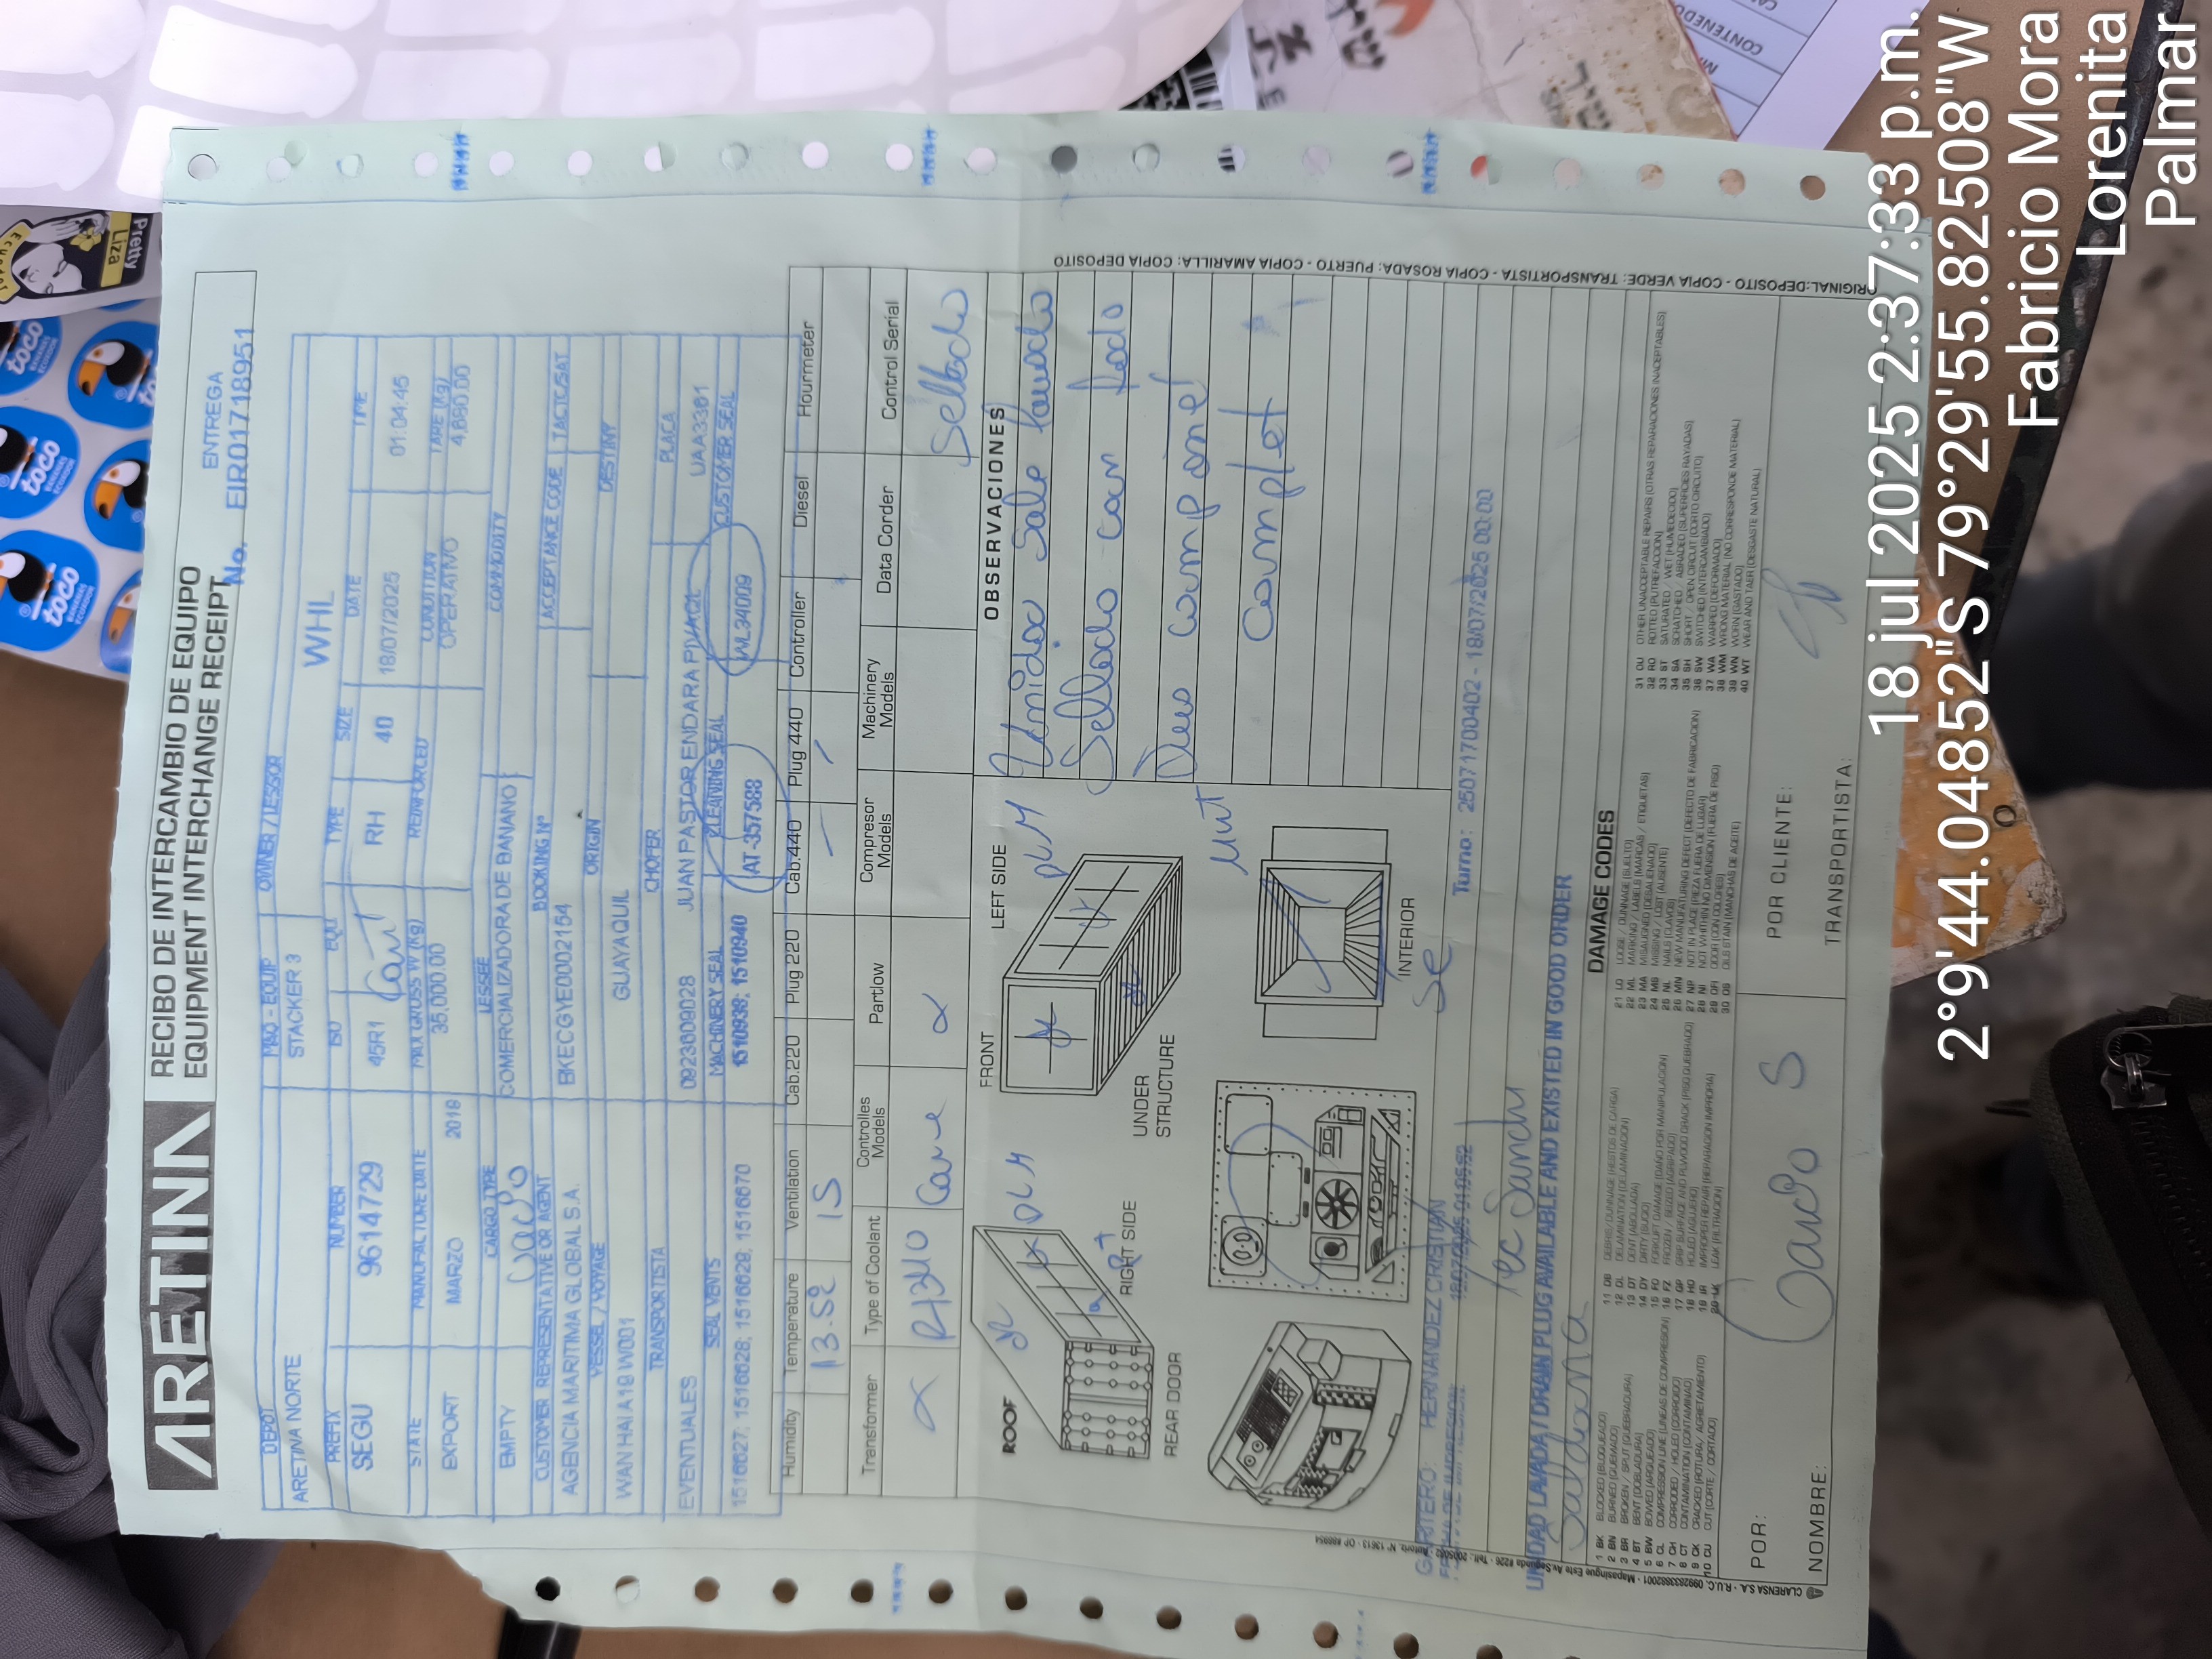 toco
BANANAS
ECUADOR
toco
BANANAS
ECUADOR
toco
BANANAS
ECUADOR
Ecuador
Pretty
Liza
ARETINA
RECIBO DE INTERCAMBIO DE EQUIPO
EQUIPMENT INTERCHANGE RECEIPT
ENTREGA
No. EIR01718951
DEPOT MAQ - EQUIP OWNER / LESSOR
ARETINA NORTE STACKER 3 WHL
PREFIX NUMBER ISO EQU TYPE SIZE DATE TIME
SEGU 9614729 45R1 RH 40 18/07/2025 01:04:45
STATE MANUFACTURE DATE MAX GROSS W (Kg) REINFORCED CONDITION TARE (Kg)
EXPORT MARZO 2018 35,000.00 OPERATIVO 4,680.00
CARGO TYPE LESSEE COMMODITY
EMPTY Vacío COMERCIALIZADORA DE BANANO
CUSTOMER REPRESENTATIVE OR AGENT BOOKING Nº ACCEPTANCE CODE TACTC/SAT
AGENCIA MARITIMA GLOBAL S.A. BKECGYE0002154
VESSEL / VOYAGE ORIGIN DESTINY
WAN HAI A19 W001 GUAYAQUIL
TRANSPORTISTA CHOFER PLACA
EVENTUALES 0923609028 JUAN PASTOR ENDARA UAA3361
SEAL VENTS MACHINERY SEAL CLEANING SEAL CUSTOMER SEAL
1516627; 1516628; 1516628; 1516670 1510938; 1510940 AT-357588 WL34009
Humidity Temperature Ventilation Cab.220 Plug 220 Cab.440 Plug 440 Controller Diesel Hourmeter
13.5º 15
Transformer Type of Coolant Controlles Models Partlow Compresor Models Machinery Models Data Corder Control Serial
R134a Sellado
ROOF
DLM
RIGHT SIDE
REAR DOOR
FRONT
LEFT SIDE
DLM
UNDER
STRUCTURE
INTERIOR
Se
OBSERVACIONES
Unidad Sale lavado
Sellado con todo
Sus component
complet
GARITERO: HERNANDEZ CRISTIAN
FECHA DE IMPRESION: 18/07/2025 01:05:52
Turno: 25071700402 - 18/07/2025 00:00
Tec
UNIDAD LAVADA / DRAIN PLUG AVAILABLE AND EXISTED IN GOOD ORDER
Saldarna
DAMAGE CODES
1 BK BLOCKED (BLOQUEADO)
2 BN BURNED (QUEMADO)
3 BR BROKEN / SPLIT (QUEBRADURA)
4 BT BENT (DOBLADURA)
5 BW BOWED (ARQUEADO)
6 CL COMPRESSION LINE (LINEAS DE COMPRESION)
7 CH CORRODED / HOLED (CORROIDO)
8 CT CONTAMINATION (CONTAMINAD)
9 CK CRACKED (ROTURA/ AGRIETAMIENTO)
10 CU CUT (CORTE / CORTADO)
11 DB DEBRIS/DUNNAGE (RESTOS DE CARGA)
12 DL DELAMINATION (DELAMINACION)
13 DT DENT (ABOLLADA)
14 DY DIRTY (SUCIO)
15 FD FORKLIFT DAMAGE (DAÑO POR MANIPULACION)
16 FZ FROZEN / SEIZED (AGRIPADO)
17 GP GRIP SURFACE AND PLWOOD CRACK (PISO QUEBRADO)
18 HO HOLED (AGUJERO)
19 IR IMPROPER REPAIR (REPARACION IMPROPIA)
20 LK LEAK (FILTRACION)
21 LO LOOSE / DUNNAGE (SUELTO)
22 ML MARKING / LABELS (MARCAS / ETIQUETAS)
23 MA MISALIGNED (DESALIENADO)
24 MS MISSING / LOST (AUSENTE)
25 NL NAILS (CLAVOS)
26 MN NEW MANUFACTURING DEFECT (DEFECTO DE FABRICACION)
27 NP NOT IN PLACE (PIEZA FUERA DE LUGAR)
28 NI NOT WHITHIN NO DIMENSION (FUERA DE PISO)
29 OFI ODOR (CON COLORES)
30 OS OILS STAIN (MANCHAS DE ACEITE)
31 OU OTHER UNACCEPTABLE REPAIRS (OTRAS REPARACIONES INACEPTABLES)
32 RO ROTTED (PUTREFACCION)
33 ST SATURATED / WET (HUMEDECIDO)
34 SA SCRATCHED / ABRADED (SUPERFICIES RAYADAS)
35 SH SHORT / OPEN CIRCUIT (CORTO CIRCUITO)
36 SW SWITCHED (INTERCAMBIADO)
37 WA WARPED (DEFORMADO)
38 WM WRONG MATERIAL (NO CORRESPONDE MATERIAL)
39 WN WORN (GASTADO)
40 WT WEAR AND TAER (DESGASTE NATURAL)
POR:
NOMBRE:
POR CLIENTE:
TRANSPORTISTA:
ORIGINAL:DEPOSITO - COPIA VERDE: TRANSPORTISTA - COPIA ROSADA: PUERTO - COPIA AMARILLA: COPIA DEPOSITO
CONTENEDO
18 jul 2025 2:37:33 p.m.
2°9'44.04852"S 79°29'55.82508"W
Fabricio Mora
Lorenita
Palmar